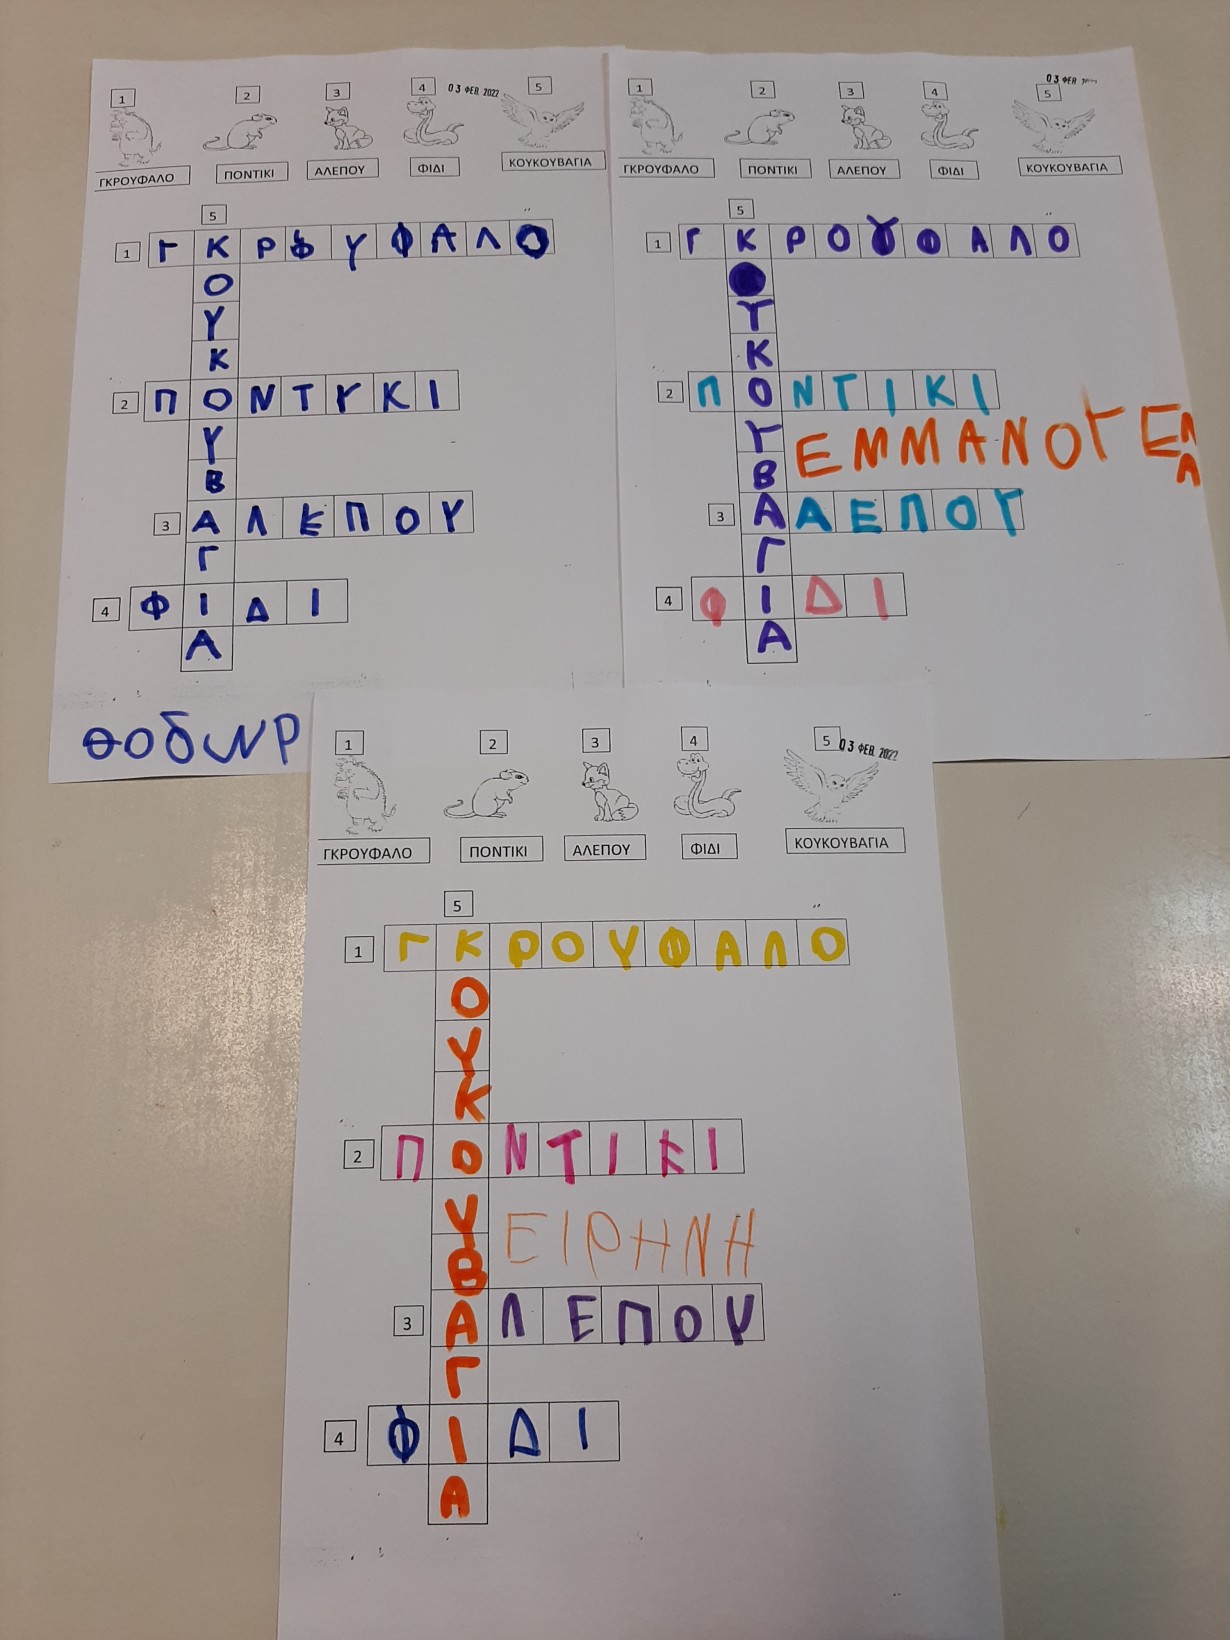 1 2 3 4 03 ΦΕΒ 2022 5
ΓΚΡΟΥΦΑΛΟ ΠΟΝΤΙΚΙ ΑΛΕΠΟΥ ΦΙΔΙ ΚΟΥΚΟΥΒΑΓΙΑ
5
1 ΓΚΡΟΥΦΑΛΟ
Ο
Υ
Κ
2 ΠΟΝΤΥΚΙ
Υ
Β
3 ΑΛΕΠΟΥ
Γ
4 ΦΙΔΙ
Α
θοδωρ
1 2 3 4 03 ΦΕΒ 5
ΓΚΡΟΥΦΑΛΟ ΠΟΝΤΙΚΙ ΑΛΕΠΟΥ ΦΙΔΙ ΚΟΥΚΟΥΒΑΓΙΑ
5
1 ΓΚΡΟΥΦΑΛΟ
Ο
Υ
Κ
2 ΠΟΝΤΙΚΙ
Υ
ΕΜΜΑΝΟΥΕΛΑ
Β
3 ΑΛΕΠΟΥ
Γ
4 ΦΙΔΙ
Α
1 2 3 4 5 03 ΦΕΒ 2022
ΓΚΡΟΥΦΑΛΟ ΠΟΝΤΙΚΙ ΑΛΕΠΟΥ ΦΙΔΙ ΚΟΥΚΟΥΒΑΓΙΑ
5
1 ΓΚΡΟΥΦΑΛΟ
Ο
Υ
Κ
2 ΠΟΝΤΙΚΙ
Υ
ΕΙΡΗΝΗ
Β
3 ΑΛΕΠΟΥ
Γ
4 ΦΙΔΙ
Α